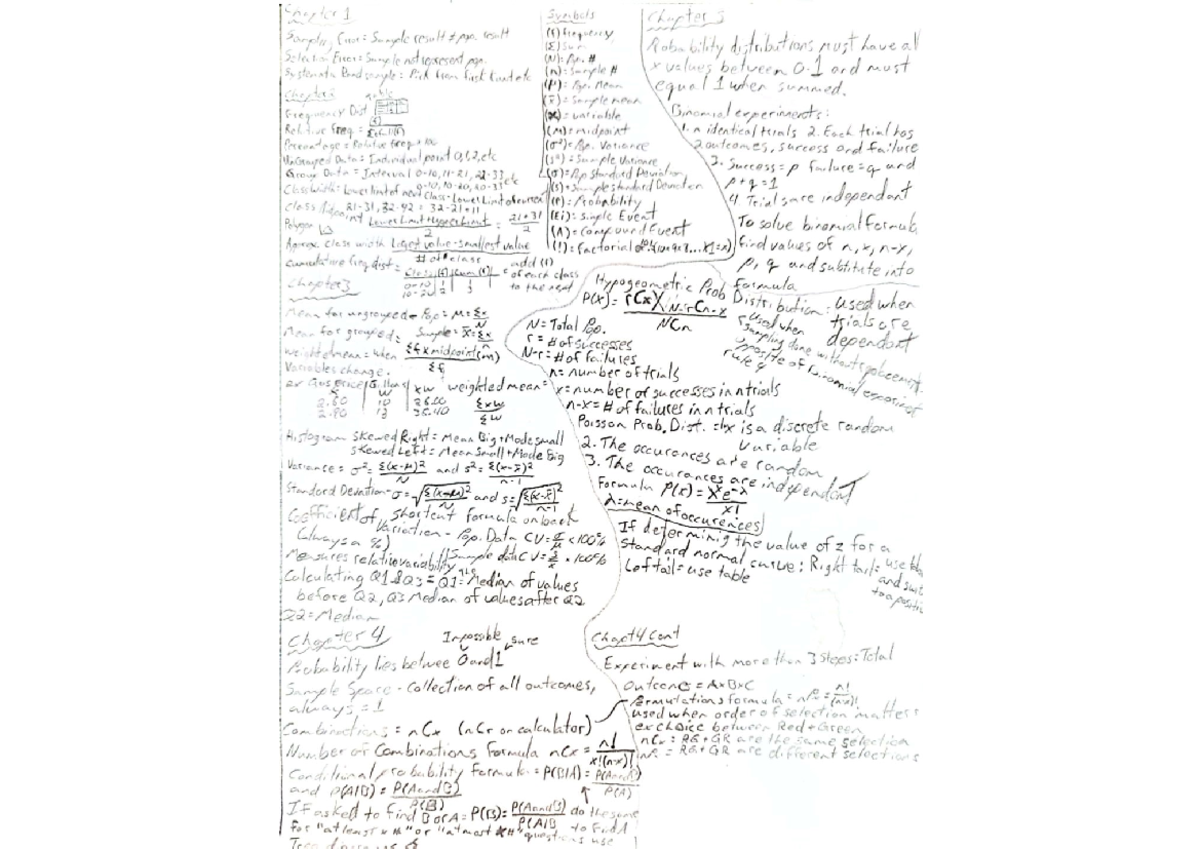 Chapter 1
Sampling Error = Sample result ≠ pop. result
Selection Error = Sample not represent pop.
Systematic Rand sample = Pick from first k unit etc
Chapter 2
Frequency Dist
Relative Freq =
Percentage = Relative freq × 100
UnGrouped Data = Individual point 0,1,2, etc
Group Data = Interval 0-10, 11-21, 22-33
Class Width = Lower limit of next class - Lower Limit of current
0-10, 10-20, 20-33 etc
21-31, 32-42 = 32-21=11
Class Midpoint Lower Limit + Upper Limit / 2 = 21+31 / 2
Polygon
Approx. class width Largest value - smallest value / # of class
Cumulative freq dist =
add (f) of each class to the next
Chapter 3
Mean for ungrouped = Pop = μ = Σx / N
Sample = x̄ = Σx
Mean for grouped = Σf x midpoint(m) / Σf
Weighted mean = when
Variables change.
ex Gas Price | Gallons | xw weighted mean = Σxw / Σw
w
2.60 10 26.00
2.80 13 36.40
Histogram Skewed Right = Mean Big + Mode small
Skewed Left = Mean Small + Mode Big
Variance = σ² = Σ(x-μ)² / N and s² = Σ(x-x̄)² / n-1
Standard Deviation = σ = √Σ(x-μ)² / N and s = √Σ(x-x̄)² / n-1
shortcut formula on back
Coefficient of Variation - Pop. Data CV = σ/μ × 100%
(always a %)
Measures relative variability Sample data CV = s/x̄ × 100%
Calculating Q1 & Q3 = Q1 = Median of values
before Q2, Q3 Median of values after Q2
Q2 = Median
Chapter 4
Impossible sure
Probability lies betwee 0 and 1
Sample Space - Collection of all outcomes,
always = 1
Combinations = nCx (nCr on calculator)
Number of Combinations Formula nCx = n! / x!(n-x)!
Conditional probability Formula = P(B|A) = P(A and B) / P(A)
and P(A|B) = P(A and B) / P(B)
If asked to find B or A = P(B) = P(A and B) / P(A|B do the same to find A
For "at least x #" or "at most x #" questions use
Tree diagrams
Symbols
(f) = frequency
(Σ) = Sum
(N) = Pop. #
(n) = Sample #
(μ) = Pop. Mean
(x̄) = Sample mean
(x) = variable
(m) = midpoint
(σ²) = Pop. Variance
(s²) = Sample Variance
(σ) = Pop standard Deviation
(s) = Sample standard Deviation
(P) = Probability
(Ei) = Simple Event
(A) = Compound Event
(!) = Factorial
Chapter 5
Probability distributions must have all
x values between 0-1 and must
equal 1 when summed.
Binomial experiments:
1. n identical trials 2. Each trial has
2 outcomes, success and failure
3. Success = p failure = q and
p+q=1
4. Trials are independant
To solve binomial formula,
find values of n, x, n-x,
p, q and substitute into
formula
Hypogeometric Prob Distribution: used when
trials are
dependant
P(x) = rCx N-rCn-x / NCn
used when
sampling done without
opposite of binomial
rule 4
N = Total Pop.
r = # of successes
N-r = # of failures
n = number of trials
x = number of successes in n trials
n-x = # of failures in n trials
Poisson Prob. Dist. = 1. x is a discrete random
variable
2. The occurances are random
3. The occurances are independant
Formula P(x) = λˣe⁻λ / x!
λ = mean of occurences
If determinig the value of z for a
standard normal curve: Right tail = use
Left tail = use table
and
to a
Chapt 4 Cont
Experiment with more than 3 steps = Total
outcome = A×B×C
Permutations formula = nPx = n! / (n-x)!
used when order of selection matters
ex choice between Red + Green
nCx = RG + GR are the same selection
nPx = RG + GR are different selections